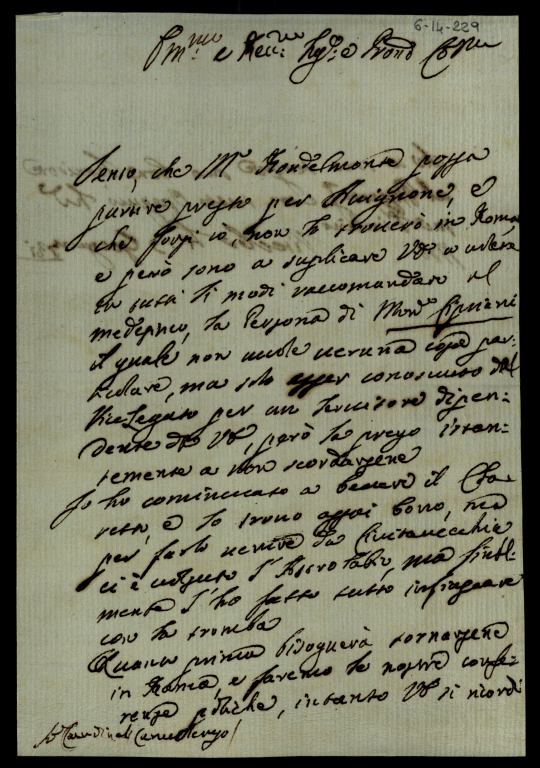 6-14-229
Em.mo e Rev.mo Sig.re e Pron Col.mo
Sento, che M.r Bondelmonte possa
partire presto per Avignone, e
che forsi io, non lo troverò in Roma,
e però sono a suplicare V.E. a volere
in tutti li modi raccomandare al
medesimo, la Persona di Mons. Cipriani
il quale non vuole veruna cosa par-
ticulare, ma solo esser conosciuto dal
Vice Legato per un servitore dipen-
dente da V.E., però la prego istan-
temente a non scordarsene
Io ho cominciato a bevere il Cla-
retto, e lo trovo assai bono, ma
per farlo venire da Civitavecchia
ci è voluto l'Astrolabio, ma final-
mente l'ho fatto tutto infiascare
con la tromba
Quanto prima bisognerà tornarsene
in Roma, e faremo le nostre confe-
renze solite, intanto V.E. si ricordi
S.r Cardinal